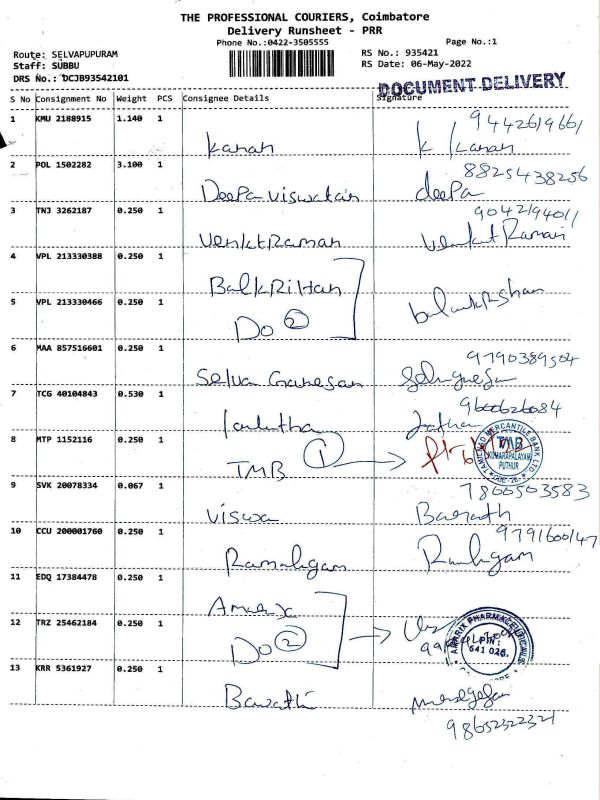 THE PROFESSIONAL COURIERS, Coimbatore
Delivery Runsheet - PRR
Phone No.:0422-3505555 Page No.:1
Route: SELVAPUPURAM RS No.: 935421
Staff: SUBBU RS Date: 06-May-2022
DRS No.: DCJB93542101
DOCUMENT DELIVERY
S No Consignment No Weight PCS Consignee Details Signature
1 KMU 2188915 1.140 1 9442619661
Karan K Karan
2 POL 1502282 3.100 1 8825438256
Deepa viswatan deepa
3 TNJ 3262187 0.250 1 9042194011
Venkt Raman Venkut Raman
4 VPL 213330388 0.250 1
BalkRiHan
5 VPL 213330466 0.250 1 balankrishan
Do 2
6 MAA 857516601 0.250 1 9790389504
Selva Ganesan
7 TCG 40104843 0.530 1 9600626084
8 MTP 1152116 0.250 1
TMB 1
TAMILNAD MERCANTILE BANK LTD.
TMB
KUMARAPALAYAM
PUTHUR
9 SVK 20078334 0.067 1 7866503583
Viswa Barath
10 CCU 200001760 0.250 1 9791600147
Ramaligam
11 EDQ 17384478 0.250 1
12 TRZ 25462184 0.250 1
Do 2
PHARMACEUTICALS
PIN:
641 026.
13 KRR 5361927 0.250 1
98652322321